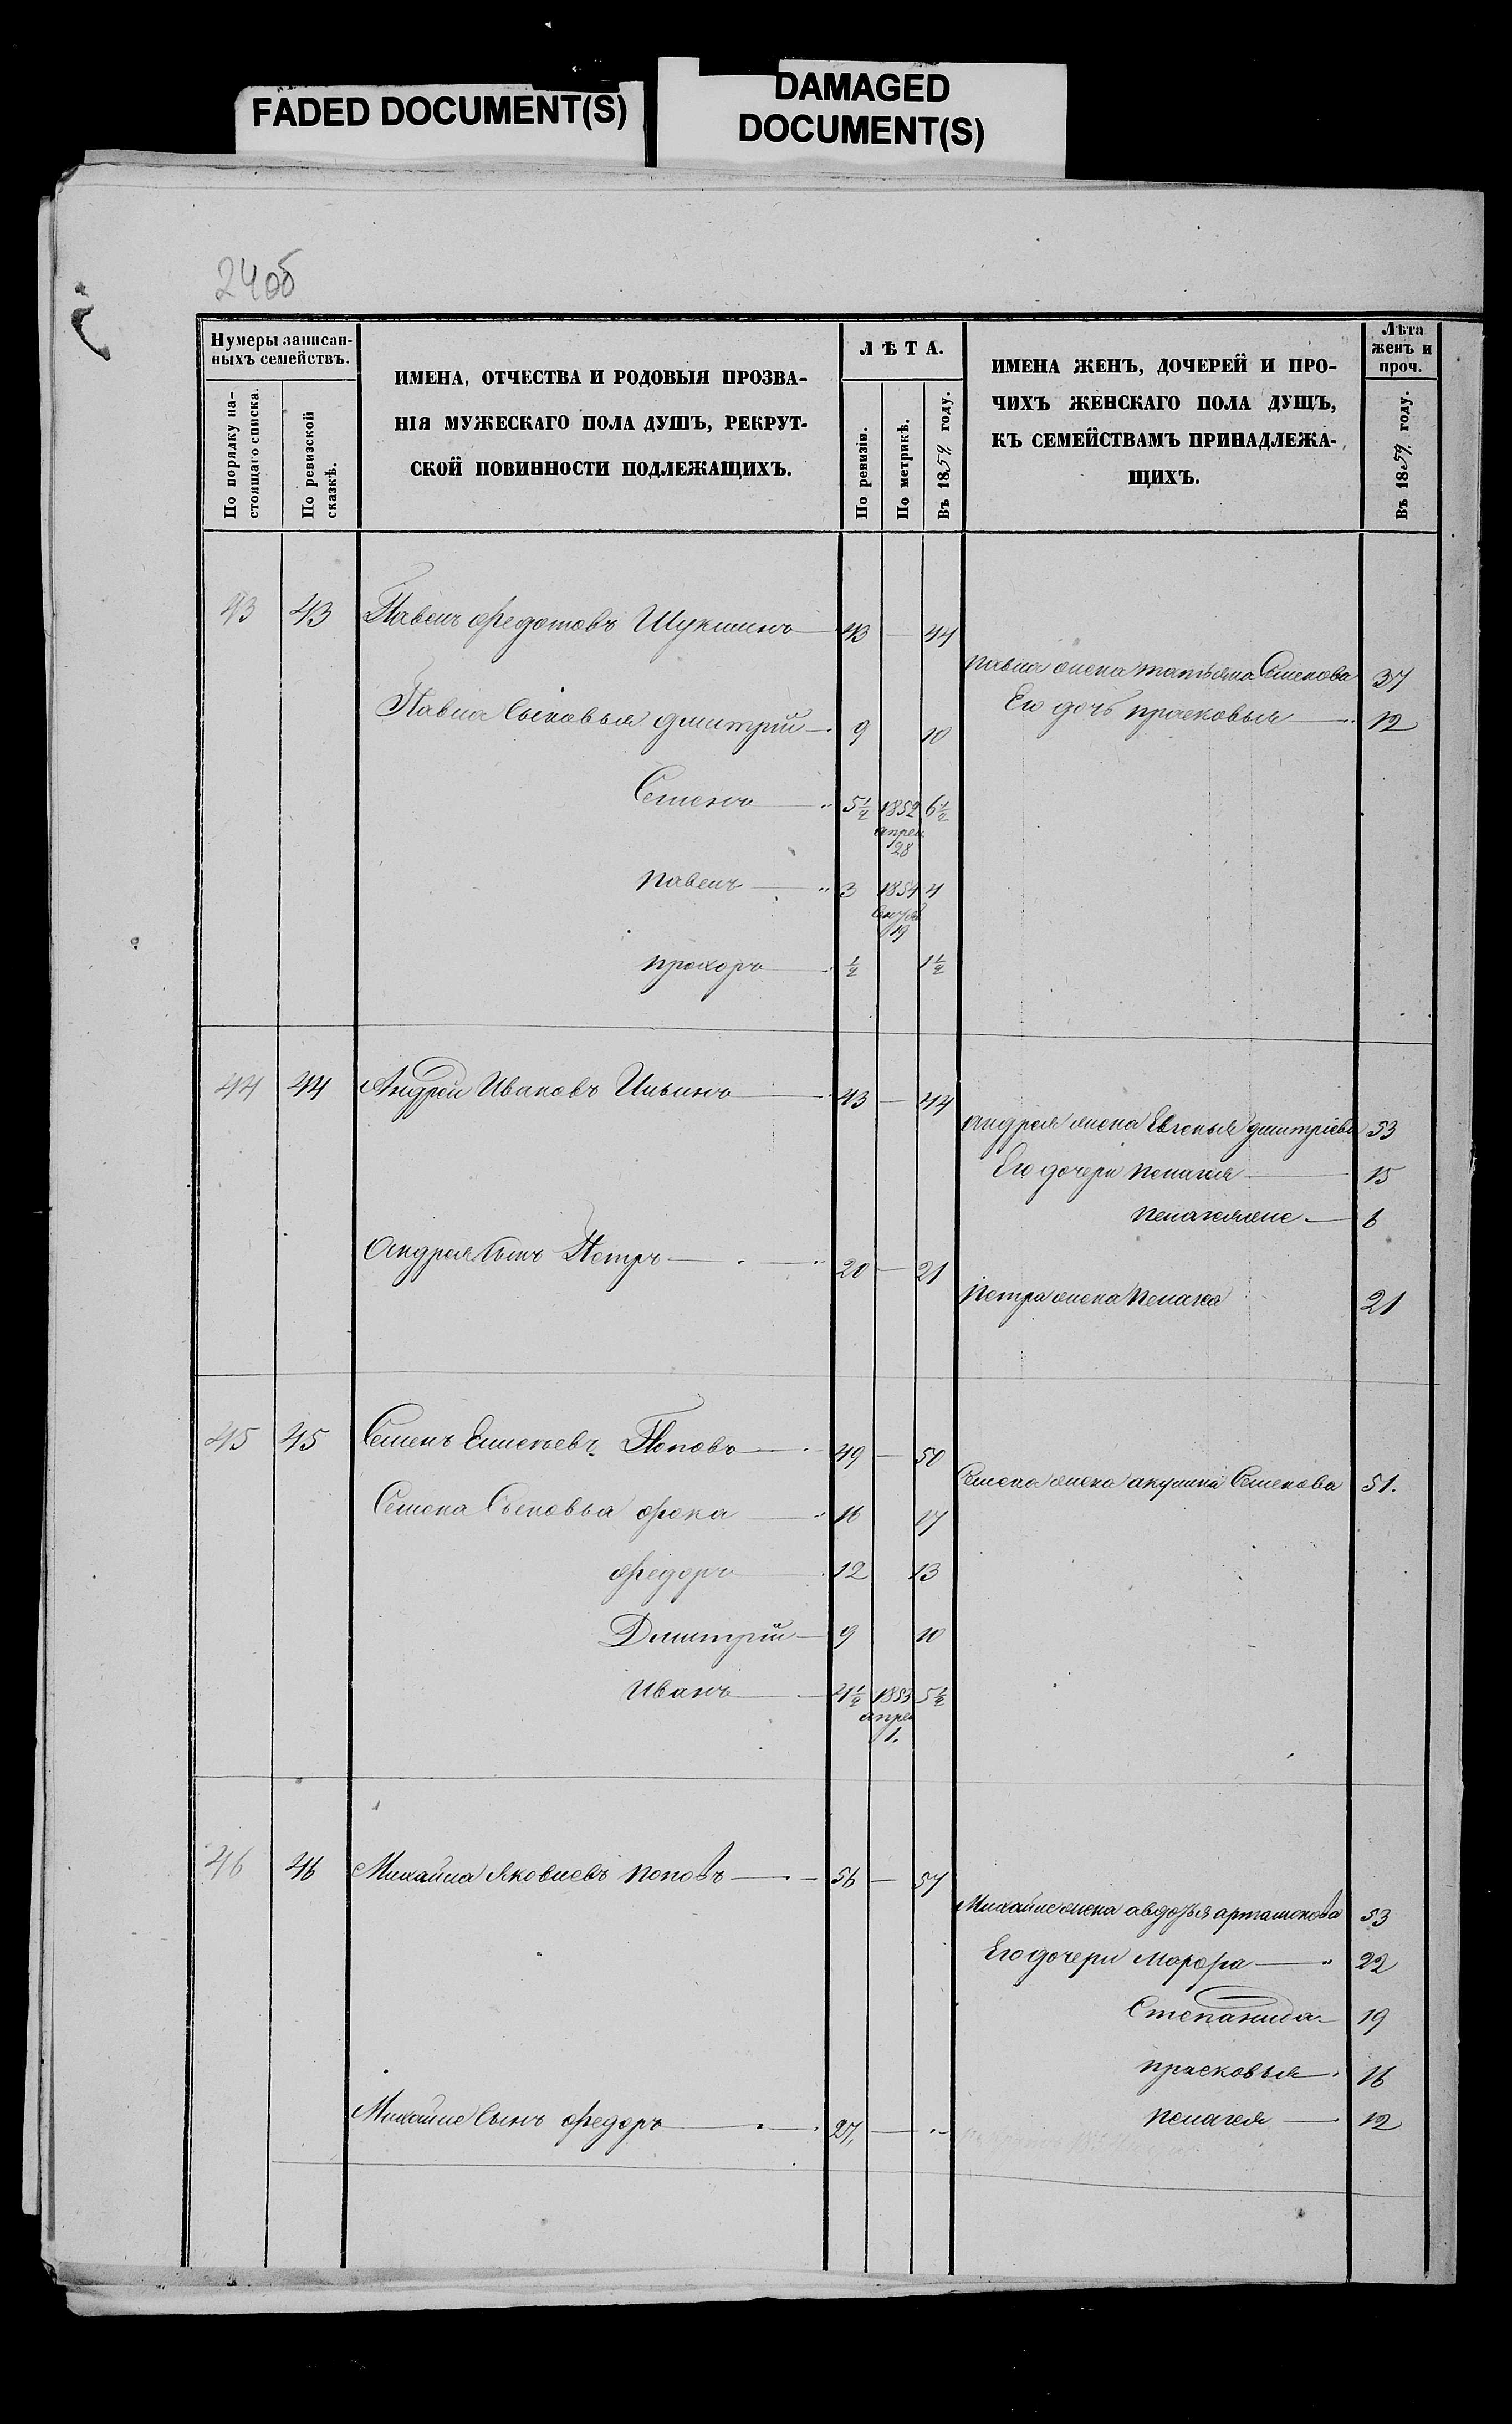 FADED DOCUMENT(S)
DAMAGED
DOCUMENT(S)
24об
Нумеры записан-
ныхъ семействъ.
По порядку на-
стоящаго списка.
По ревизской
сказкѣ.
ИМЕНА, ОТЧЕСТВА И РОДОВЫЯ ПРОЗВА-
НІЯ МУЖЕСКАГО ПОЛА ДУШЪ, РЕКРУТ-
СКОЙ ПОВИННОСТИ ПОДЛЕЖАЩИХЪ.
ЛѢТА.
По ревизіи.
По метрикѣ.
Въ 1859 году.
ИМЕНА ЖЕНЪ, ДОЧЕРЕЙ И ПРО-
ЧИХЪ ЖЕНСКАГО ПОЛА ДУЩЪ,
КЪ СЕМЕЙСТВАМЪ ПРИНАДЛЕЖА-
ЩИХЪ.
Лѣта
женъ и
проч.
Въ 1859 году.
43 43 Павелъ Федотовъ Шукшинъ 43 — 44
павла жена татьяна Семенова 37
Его дочь прасковья 12
Павла Сыновья дмитрий 9 10
Семенъ 5½ 1852 6½
апрел
28
павелъ 3 1854 4
19
прохоръ ½ 1½
44 44 Андрей Ивановъ Ильинъ 43 — 44
андрея жена Евгенья дмитріева 53
Его дочери пелагея 15
пелагеяже 6
Андрея Сынъ Петръ 20 — 21
петра жена пелагея 21
45 45 Семенъ Елисеевъ Поповъ 49 — 50
Семена жена акулина Семенова 51.
Семена Сыновья фока 16 17
федоръ 12 13
Дмитрий 9 10
Иванъ 4½ 1853 5½
апрел
1.
46 46 Михайла Яковлевъ поповъ 56 — 57
Михайлы жена авдотья артамонова 53
Его дочери Марфа 22
Степанида 19
прасковья 16
пелагея 12
Михайлы Сынъ федоръ 27,